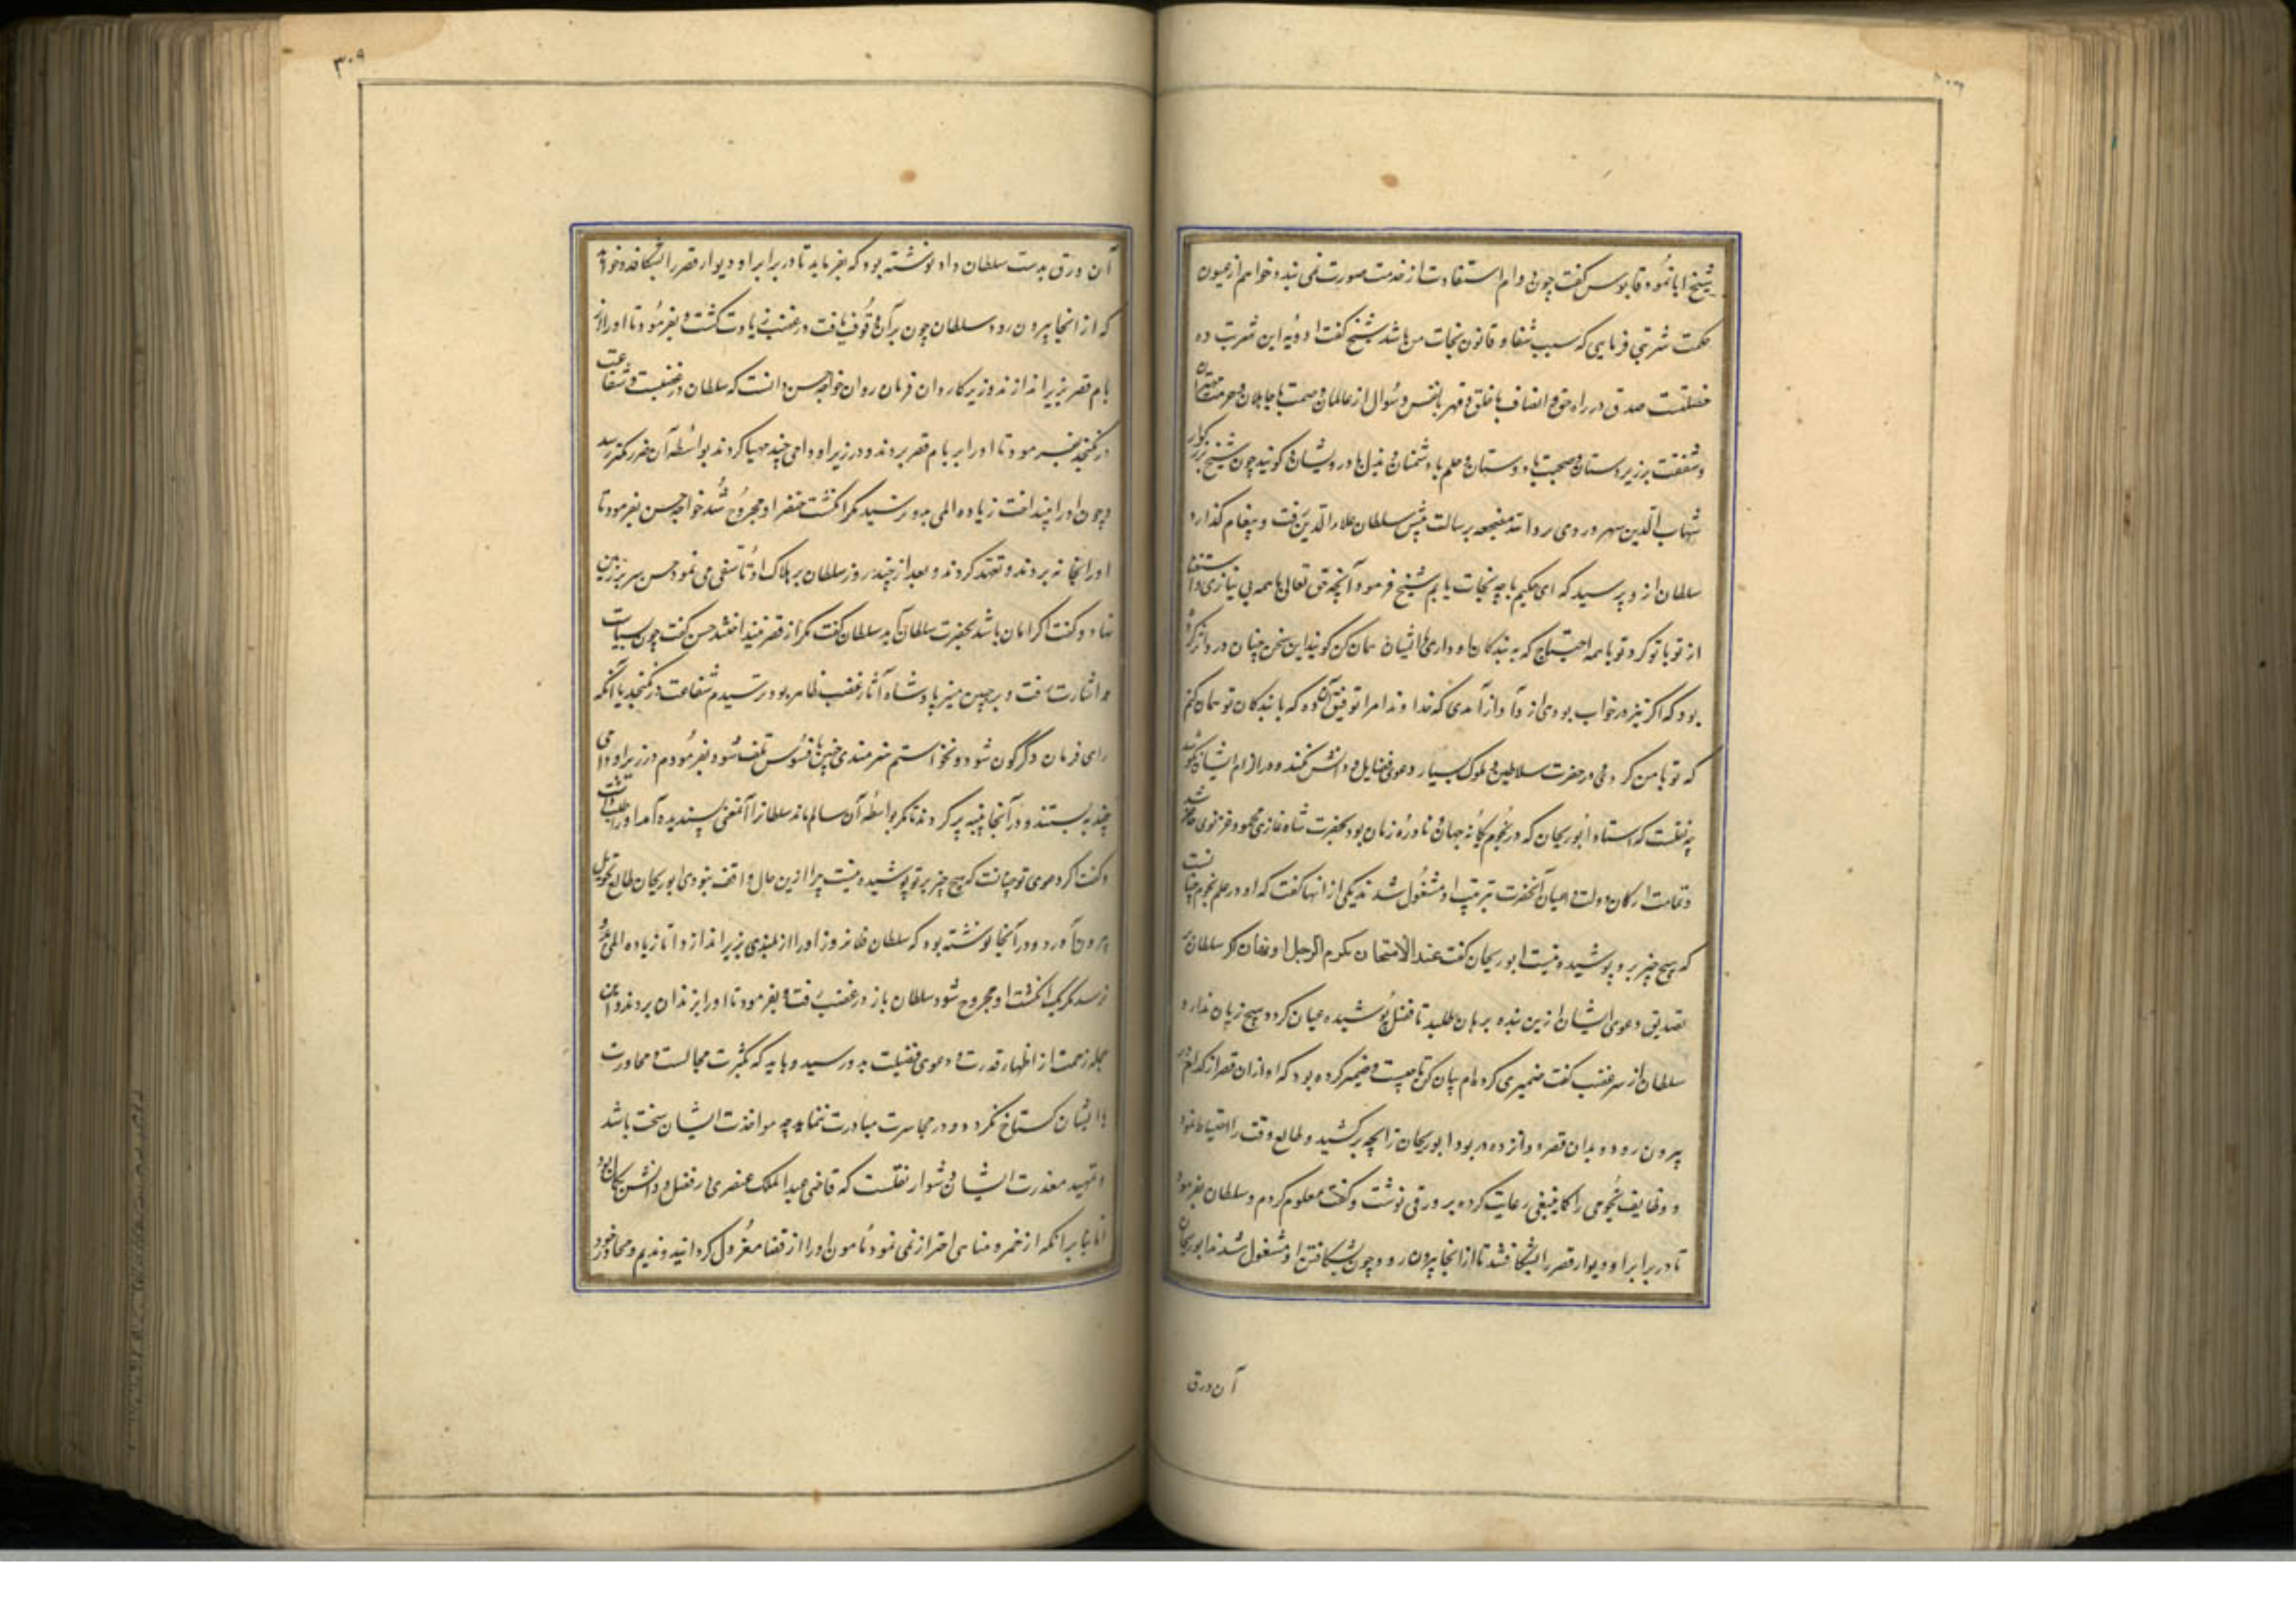 شیخ ابا نمود قابوس گفت چون دوام استفادت از خدمت صورت نمی بندد خواهم از عیون
حکمت شربتی فرمایی که سبب شفا و قانون نجات من باشد شیخ گفت ادویه این شربت ده
خصلتست صدق در راه حق و انصاف با خلق و قهر با نفس و سؤال از عالمان و صمت با جاهلان و حرمت مهتران
و شفقت بر زیردستان و صحبت با دوستان و حلم با دشمنان و بذل با درویشان و کویند چون شیخ بزرکوار
شهاب الدین سهروردی روا الله مضجعه برسالت پیش سلطان علاء الدین رفت و پیغام گذارد
سلطان از و پرسید که ای حکیم با چه نجات یابم شیخ فرمود آنچه حق تعالی با همه بی نیازی و استغنا
از تو با تو کرد تو با همه احتیاج که به بندکان او داری با ایشان همان کن کویند این سخن چنان در و اثر کرده
بود که اکر نیز در خواب بودی از و آواز آمدی که خداوندا مرا توفیق ده که با بندکان تو همان کنم
که تو با من کردی و در حضرت سلاطین و ملوک بسیار دعوی فضایل و دانش نکند و در الزام ایشان نکوشد
چه نقلست که استاد ابوریحان که در نجوم یکانه جهان و نادره زمان بود بحضرت شاه غازی محمود غزنوی حاضر شد
و تمامت ارکان دولت و اعیان آنحضرت بتربیت او مشغول شدند یکی از انها کفت که او در علم نجوم چنانست
که هیچ چیز بر و پوشیده نیست ابوریحان کفت عند الامتحان یکرم الرجل او یهان اکر سلطان بر
تصدیق دعوی ایشان از ین بنده برهان طلبد تا فضل پوشیده عیان کردد هیچ زیان ندارد
سلطان از سر غضب کفت ضمیری کرده ام بیان کن تا چیست و ضمیر کرده بود که او از ان قصر از کدام در
بیرون رود و بدان قصر دوازده در بود ابوریحان زایچه برکشید و طالع وقت را احتیاط نمود
و وظایف نجومی را کما ینبغی رعایت کرده بر ورقی نوشت و کفت معلوم کردم و سلطان بفرمود
تا در برابر او دیوار قصر را بشکافند تا از انجا بیرون رود چون بشکافتن او مشغول شدند ابوریحان
آن ورق
٣٠٩
آن ورق بدست سلطان داد نوشته بود که بفرماید تا در برابر او دیوار قصر را بشکافند و خواهد
که از انجا بیرون رود سلطان چون بر آن وقوف یافت در غضب زیادت کشت و بفرمود تا او را از
بام قصر بزیر اندازند وزیر کاردان فرمان روان خواجه حسن دانست که سلطان در غضبست و شفاعت
در نکنجد بفرمود تا او را بر بام قصر بردند و در زیر او دامی چند مهیا کردند بواسطه آن ضرر کمتر رسد
و چون او را بینداخت زیاده المی بدو نرسید مکر انکشت خنصر او مجروح شد خواجه حسن بفرمود تا
او را بخانه بردند و تعهد کردند و بعد از چند روز سلطان بر هلاک او تاسفی می نمود حسن سر بر زمین
نهاد و کفت اکر امان باشد بحضرت سلطان آید سلطان کفت مکر از قصر نینداختند حسن کفت چون بسیاست
او اشارت رفت و بر جبین منیر پادشاه آثار غضب ظاهر بود ترسیدم شفاعت در نکنجد یا آنکه
رای فرمان دکرکون شود و نخواستم هنرمندی چنین بافسوس تلف شود بفرمودم در زیر او دامی
چند بر بستند و در آنجا پنبه پر کردند تا مکر بواسطه آن سالم ماند سلطانرا آن معنی پسندیده آمد او را طلب داشت
و کفت اکر دعوی تو چنانست که هیچ چیز بر تو پوشیده نیست چرا ازین حال واقف نبودی ابوریحان طالع تحویل
بیرون آورد و در آنجا نوشته بود که سلطان فلان روز او را از بلندی بزیر اندازد اما زیاده المی بدو
نرسد مکر یک انکشت او مجروح شود سلطان باز در غضب رفت و بفرمود تا او را بزندان بردند و این
جمله زحمت از اظهار قدرت و دعوی فضیلت بدو رسید و باید که بکثرت مجالست و محاورت
با ایشان کستاخ نکردد و در مجاسرت مبادرت ننماید چه مواخذت ایشان سخت باشد
و تمهید معذرت ایشان دشوار نقلست که قاضی عبد الملک عنصری در فضل و دانش یکانه بود
اما بنا بر انکه از خمر و مناهی احتراز نمی نمود مامون او را از قضا معزول کردانید و ندیم و محاور خود